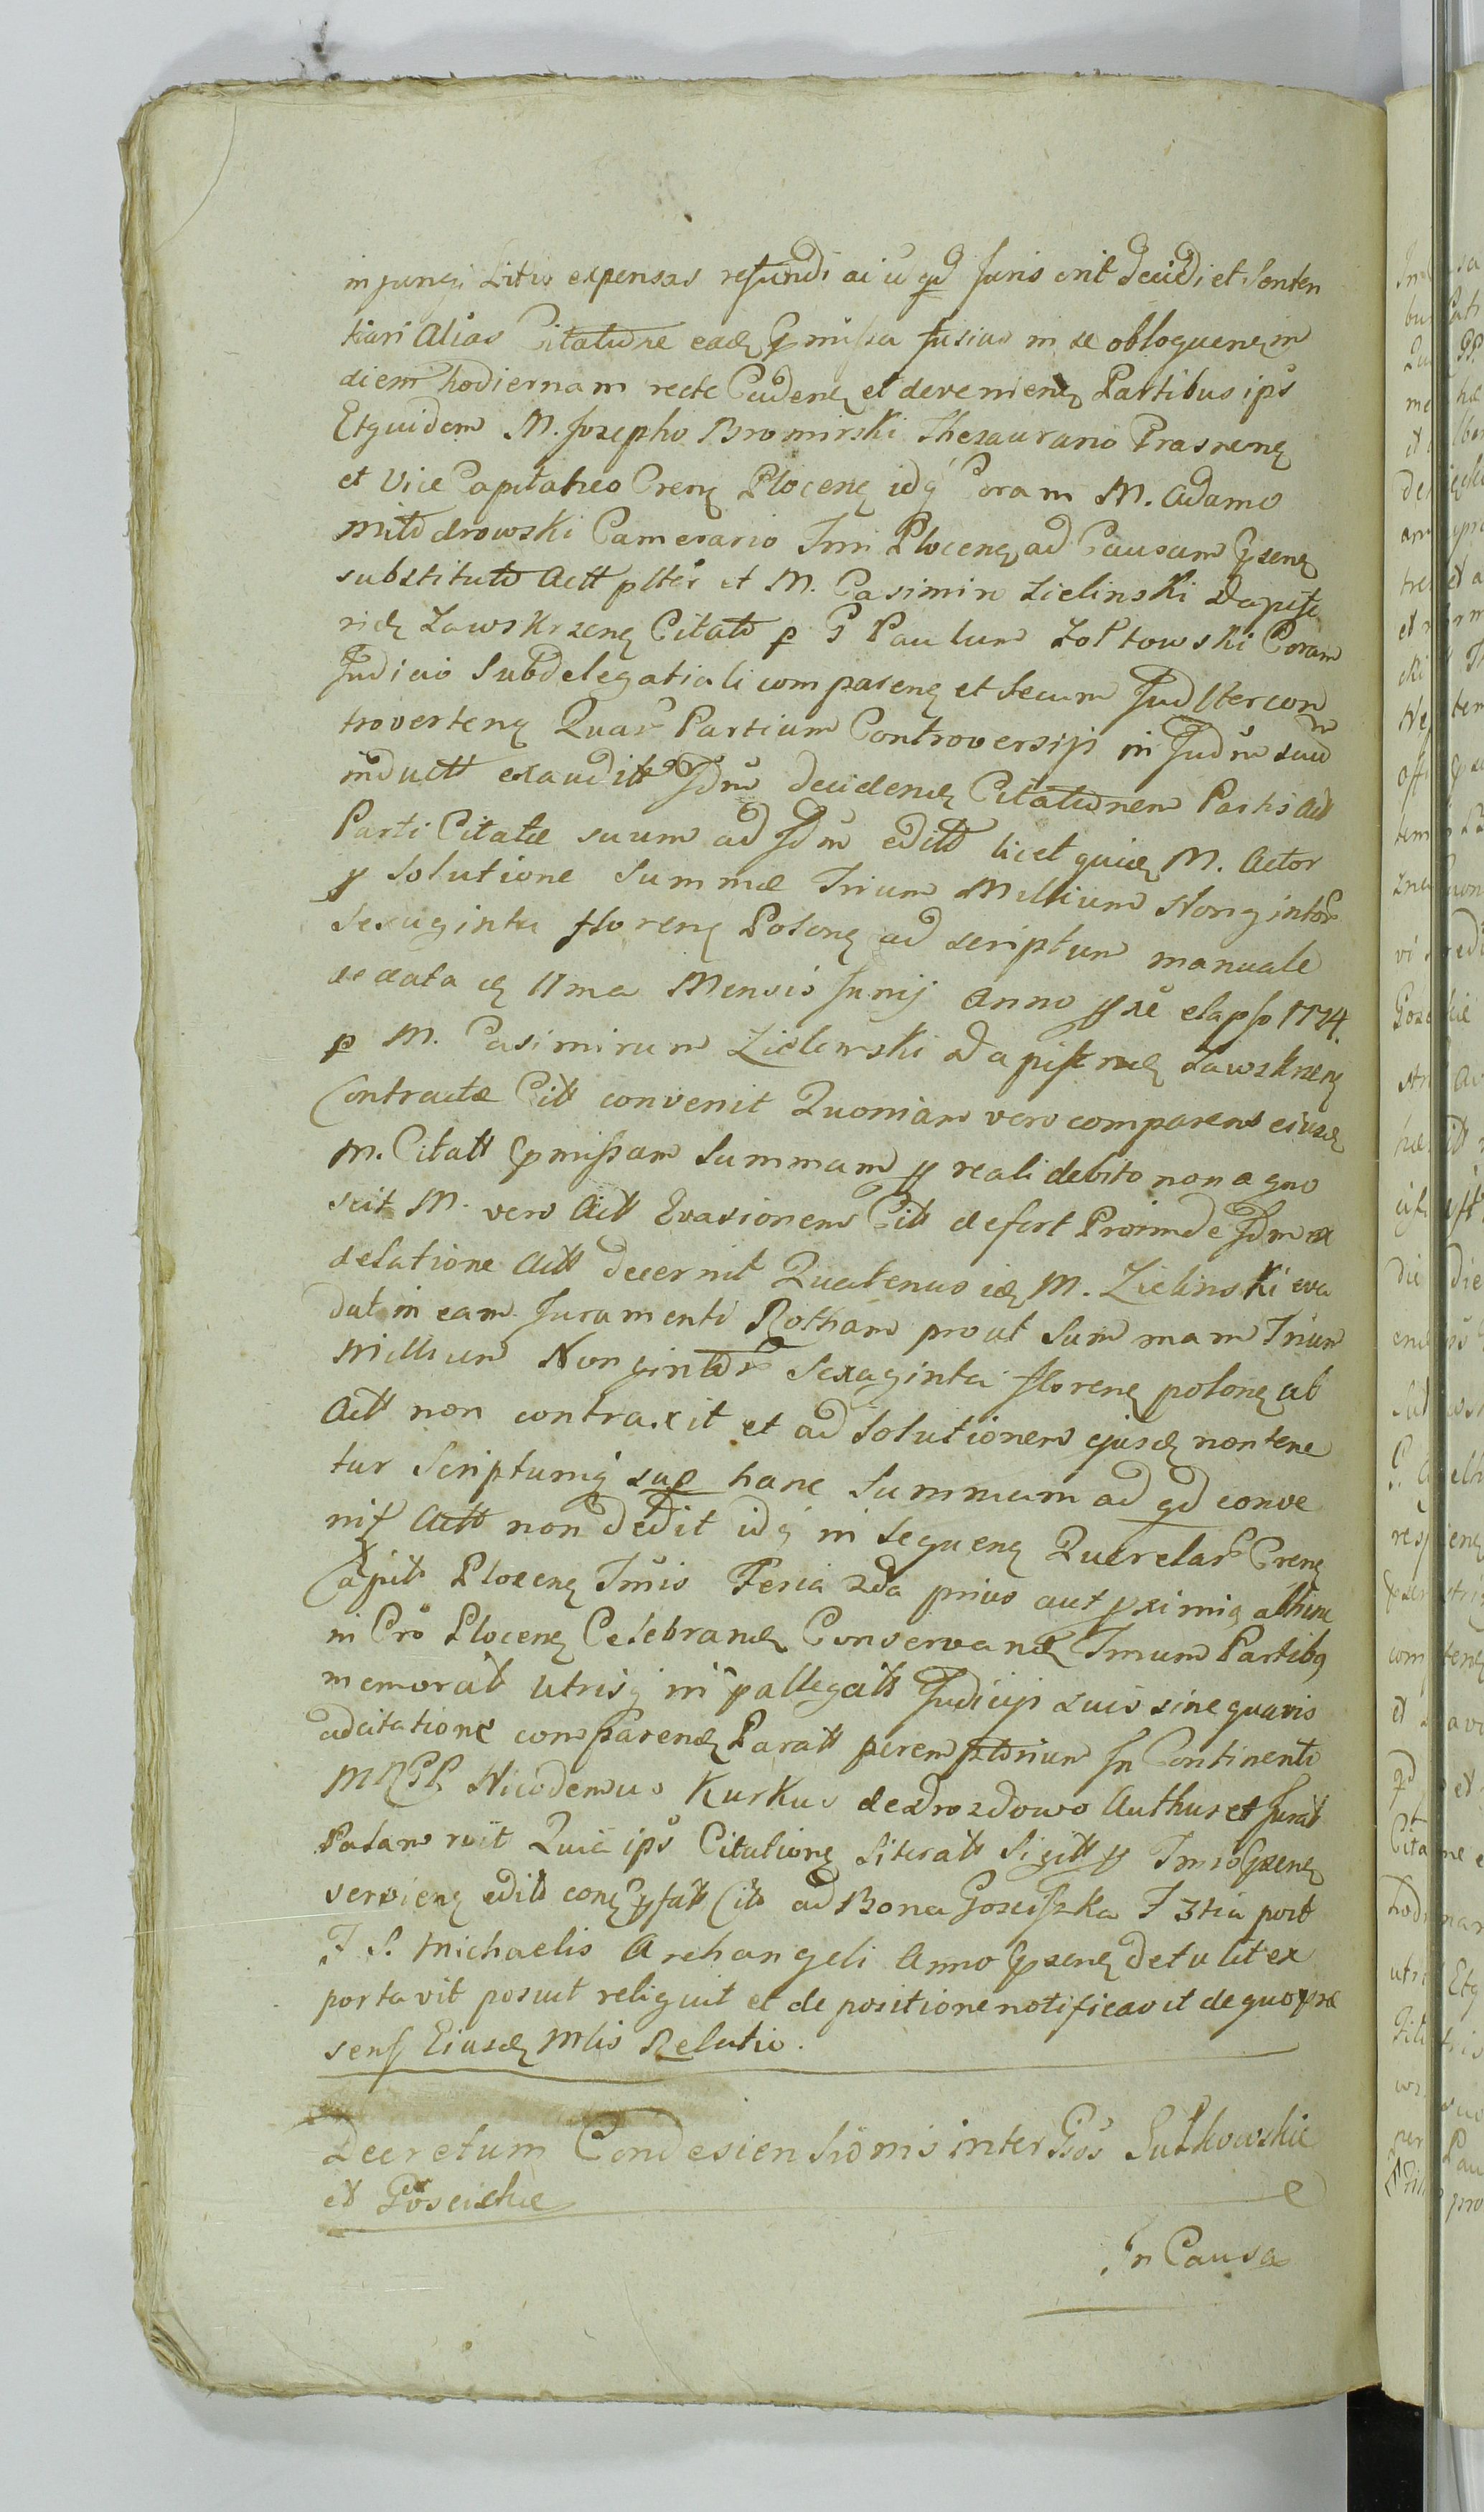 injungi Litis expensas refundi ac id qd Juris erit decidi et Senten
tiari alias Citatione eadē pmissa fusius in se obloquenē in
diem hodiernam recte Cadenē et devenienē Partibus ips
Et quidem M. Josepho Bromirski Thesaurario Prasnenē
et Vice Capitaneo Crenē Plocenē idq Coram M. Adamo
Mlodzrowski Camerario Trri Plocenē ad Causam psenē
substituto Actt plter et M. Casimiro Zielinski Dapife
ridē Zawskrzenē Citato p G Paulum Zoltowski Coram
Judicio Subdelegatiali comparenē et Secum Judlter con
trovertenē Quar Partium Controversiis in Judm suum
inductt exauditt Jdm decidendē Citationem Partis Act
Parti Citatæ suum ad Jdm editt licet quidē M. Actor
p Solutione Summæ Trium Millium Nongintor
Sexaginta florenē Polonē ad scriptum manuale
de data dē 11ma Mensis Junij Anno pxe elapso 1774.
p M. Casimirum Zielinski Dapifrudē Zawskrzenē
Contractæ Citt convenit Quoniam vero comparens eiusdē
M. Citatt pmissam Summam p reali debito non agno
scit M. vero Actt Evasionem Citt defert Proinde Jdm ex
delatione Actt decernit Quatenus idē M. Zielinski eva
dat in eam Juramenti Rotham prout Summam Trium
Millium Nongintor Sexaginta florenē polonē ab
Actt non contraxit et ad Solutionem ejusdē non tene
tur Scriptumq sup hanc Summam ad qd conve
nit Actt non dedit idq in Sequenē Querelar Crenē
Capit Plocenē Trris Feria 2da prius aut pximiq abhinc
in Cro Plocenē Celebrandē Conservandē Trmum Partibq
memorat utrisq in pallegatt Judicijs suis sine quavis
adcitatione comparendē Paratt peremptorium In Continenti
MRGR Nicodemus Kurkus de Drozdowo Authus et Jurat
Palam rcit Quia ips Citationē Literatt Sigitt p Trmo psenē
servienē editt conē pfatt Citt ad Bona Gosciszka F 3tia post
F S. Michaelis Archangeli Anno psenē detulit ex
portavit posuit reliquit et de positione notificavit de quo præ
sens Eiusdē Mlis Relatio.
Decretum Condesiensionis inter Gsos Sutkowskie
et Goscickie
In Causa